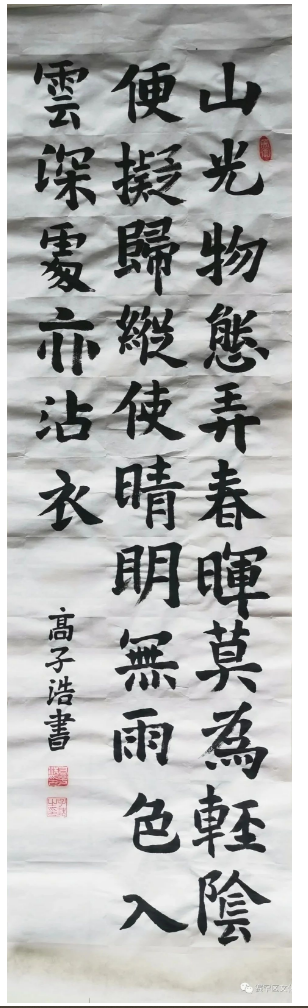 山光物態弄春暉莫為輕陰
便擬歸縱使晴明無雨色入
雲深處亦沾衣
高子浩書